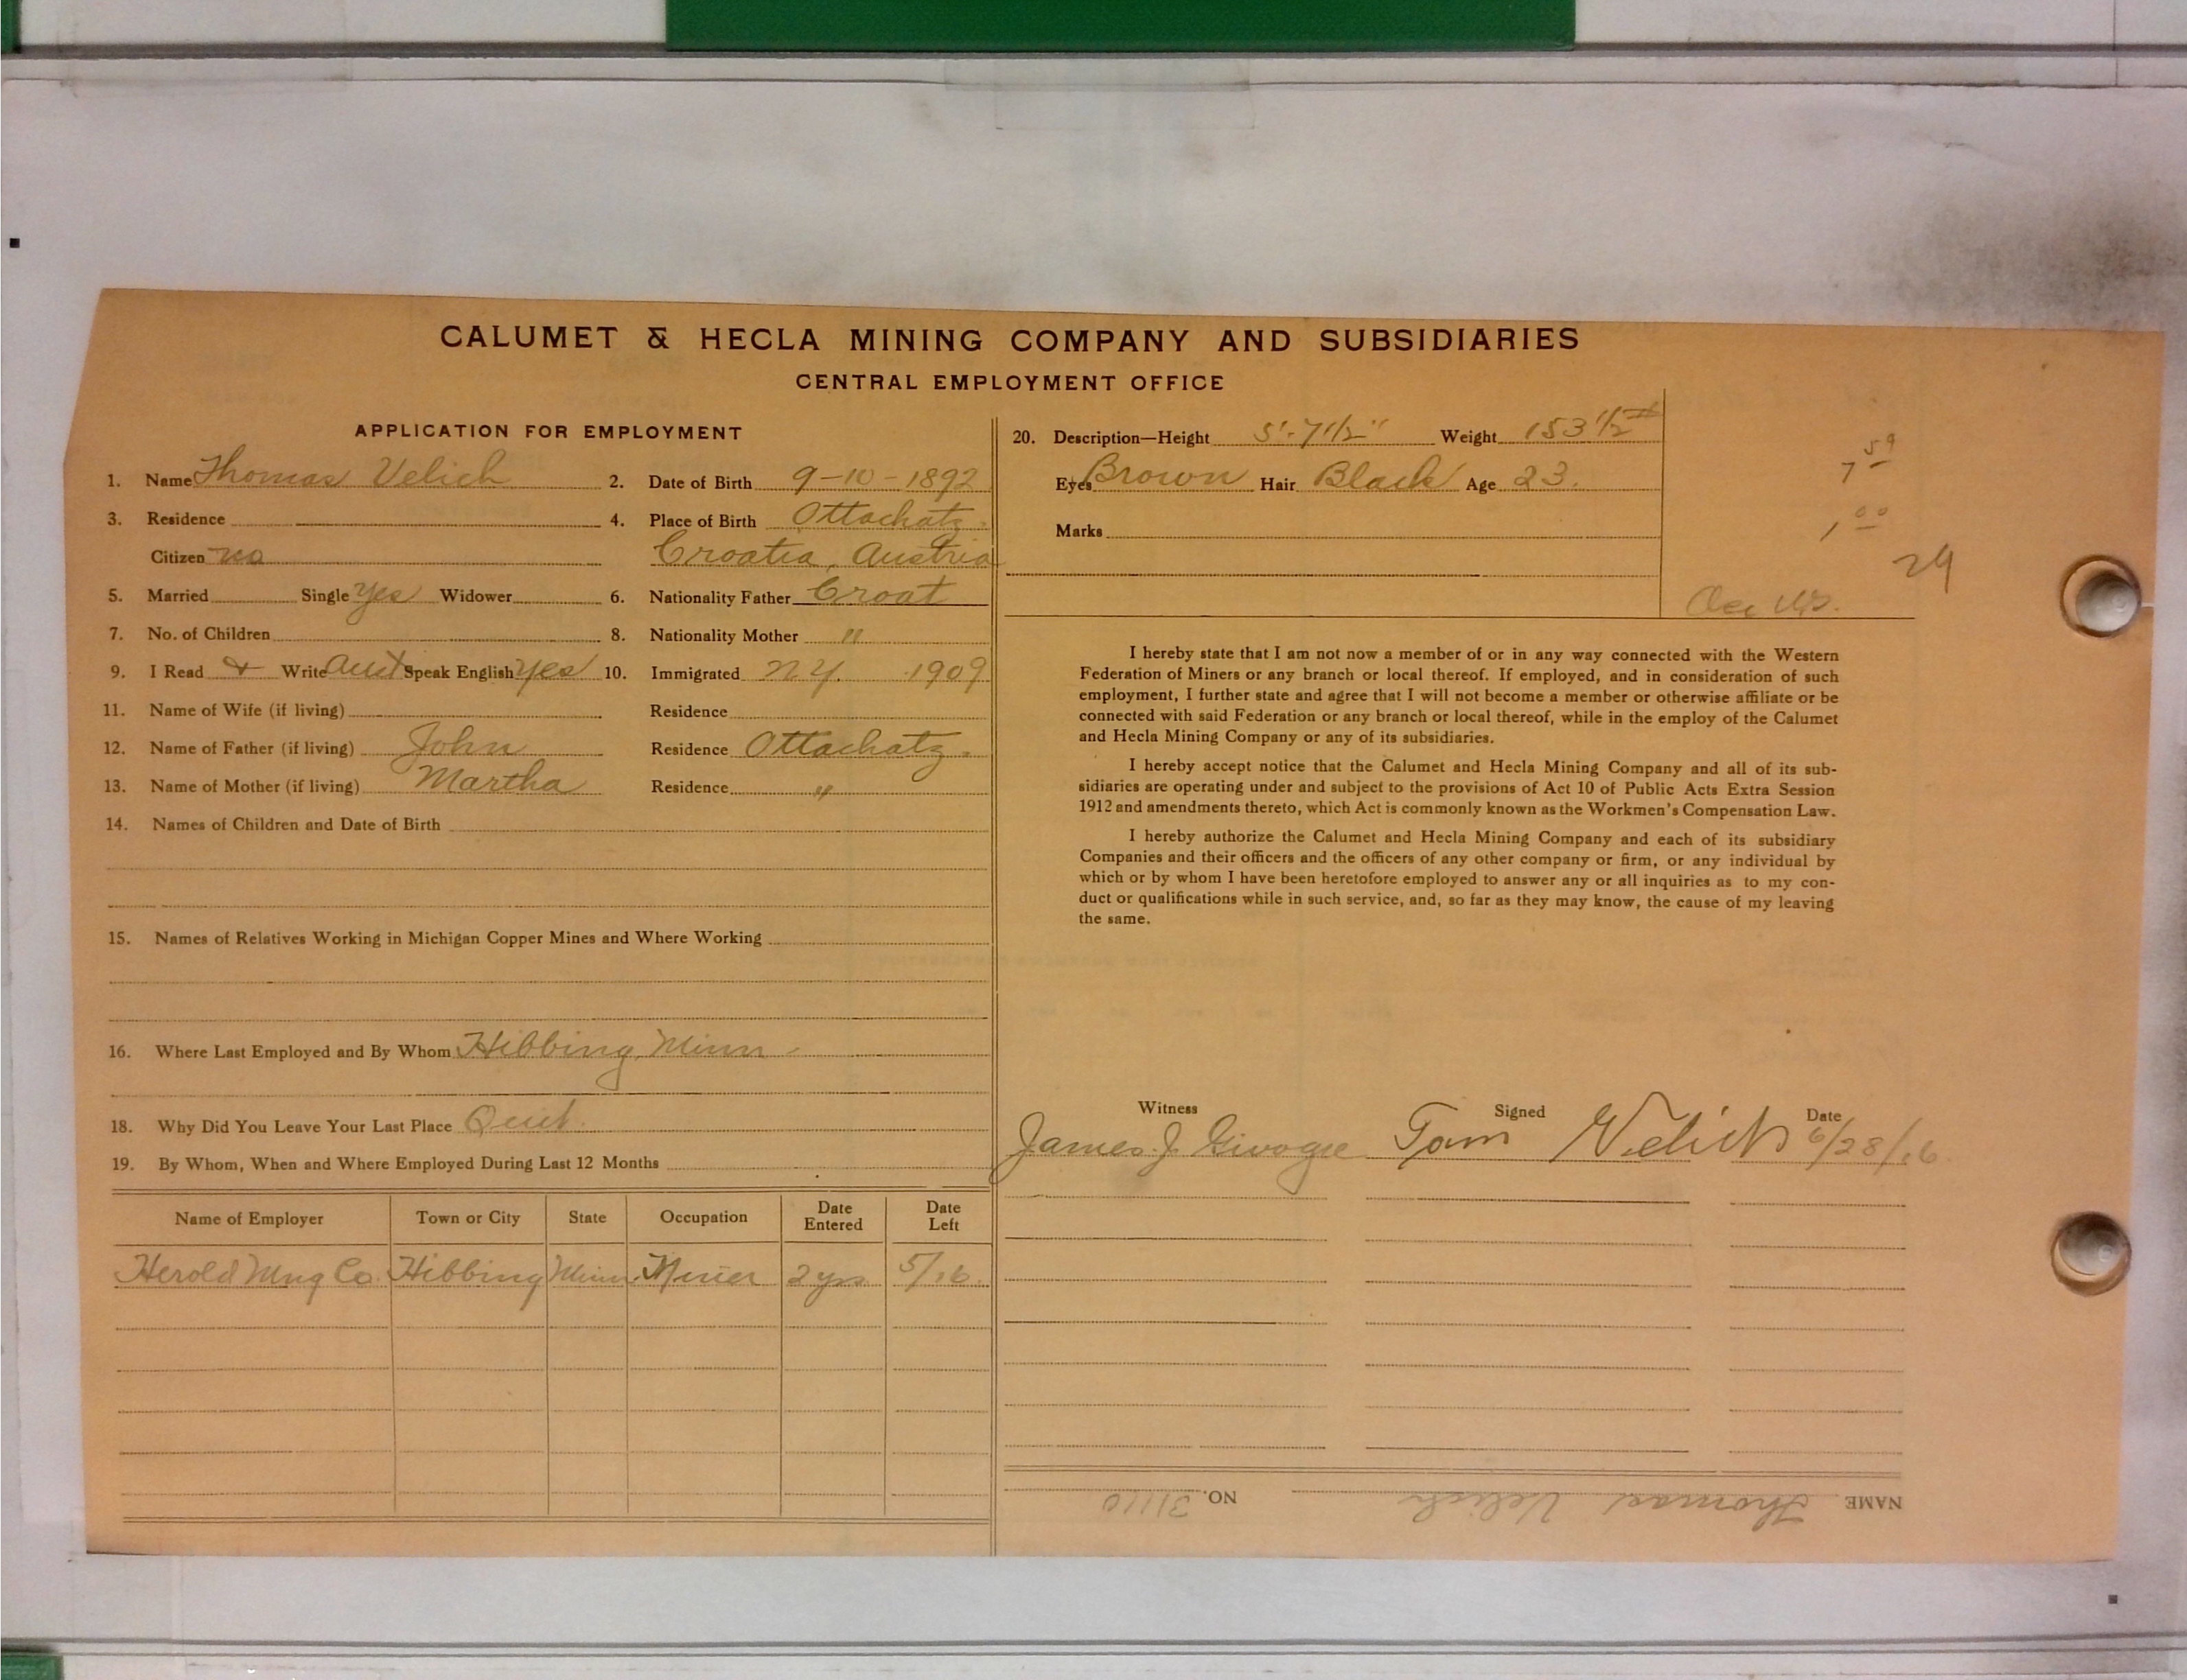 CALUMET & HECLA MINING COMPANY AND SUBSIDIARIES
CENTRAL EMPLOYMENT OFFICE
APPLICATION FOR EMPLOYMENT
1. Name Thomas Velich 2. Date of Birth 9-10-1892
3. Residence 4. Place of Birth Ottachatz.
Citizen no Croatia, Austria
5. Married Single Yes Widower 6. Nationality Father Croat
7. No. of Children 8. Nationality Mother "
9. I Read & Write Aust Speak English Yes 10. Immigrated N.Y. 1909
11. Name of Wife (if living) Residence
12. Name of Father (if living) John Residence Ottachatz.
13. Name of Mother (if living) Martha Residence "
14. Names of Children and Date of Birth
15. Names of Relatives Working in Michigan Copper Mines and Where Working
16. Where Last Employed and By Whom Hibbing, Minn.
18. Why Did You Leave Your Last Place Quit.
19. By Whom, When and Where Employed During Last 12 Months
Name of Employer Town or City State Occupation Date Entered Date Left
Herold Mng Co. Hibbing Minn. Miner 2 yrs 5/16.
20. Description—Height 5'-7 1/2" Weight 153 1/2 #
Eyes Brown Hair Black Age 23.
Marks
7 59
1 00
29
I hereby state that I am not now a member of or in any way connected with the Western
Federation of Miners or any branch or local thereof. If employed, and in consideration of such
employment, I further state and agree that I will not become a member or otherwise affiliate or be
connected with said Federation or any branch or local thereof, while in the employ of the Calumet
and Hecla Mining Company or any of its subsidiaries.
I hereby accept notice that the Calumet and Hecla Mining Company and all of its sub-
sidiaries are operating under and subject to the provisions of Act 10 of Public Acts Extra Session
1912 and amendments thereto, which Act is commonly known as the Workmen's Compensation Law.
I hereby authorize the Calumet and Hecla Mining Company and each of its subsidiary
Companies and their officers and the officers of any other company or firm, or any individual by
which or by whom I have been heretofore employed to answer any or all inquiries as to my con-
duct or qualifications while in such service, and, so far as they may know, the cause of my leaving
the same.
Witness Signed Date
James J. Tom Velich 6/28/16
NAME Thomas Velich NO. 31110